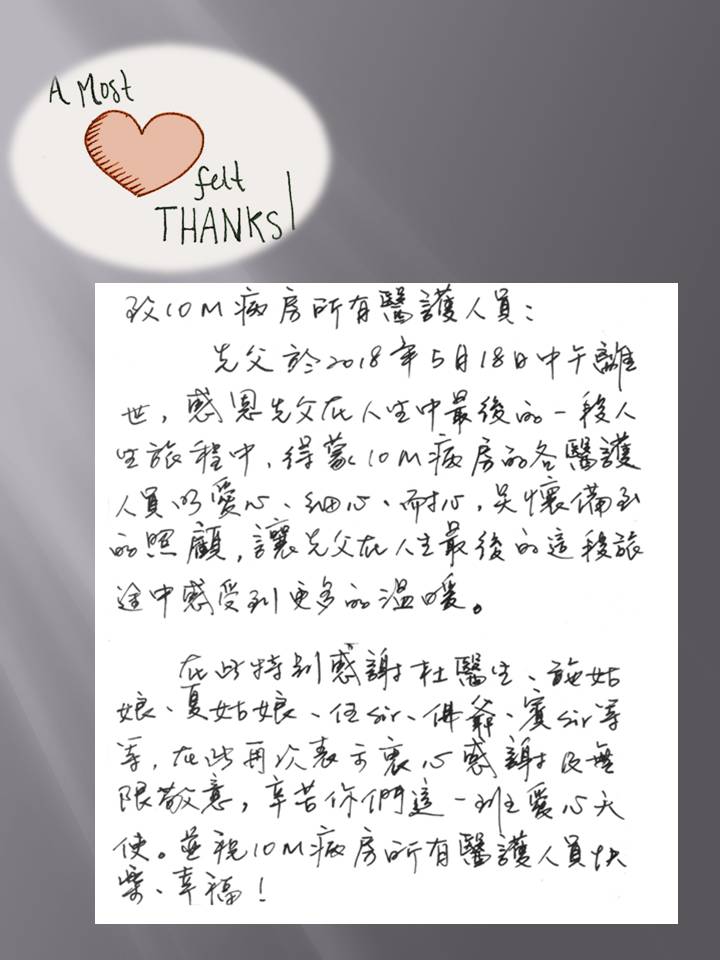 A Most
felt
THANKS!
致10M病房所有醫護人員：
先父於2018年5月18日中午離
世，感恩先父在人生中最後的一段人
生旅程中，得蒙10M病房的各醫護
人員以愛心、細心、耐心，關懷備至
的照顧，讓先父在人生最後的這段旅
途中感受到更多的溫暖。
在此特別感謝杜醫生、施姑
娘、夏姑娘、任sir、佛爺、賓sir等
等，在此再次表示衷心感謝及無
限敬意，辛苦你們這一班愛心天
使。並祝10M病房所有醫護人員快
樂、幸福！